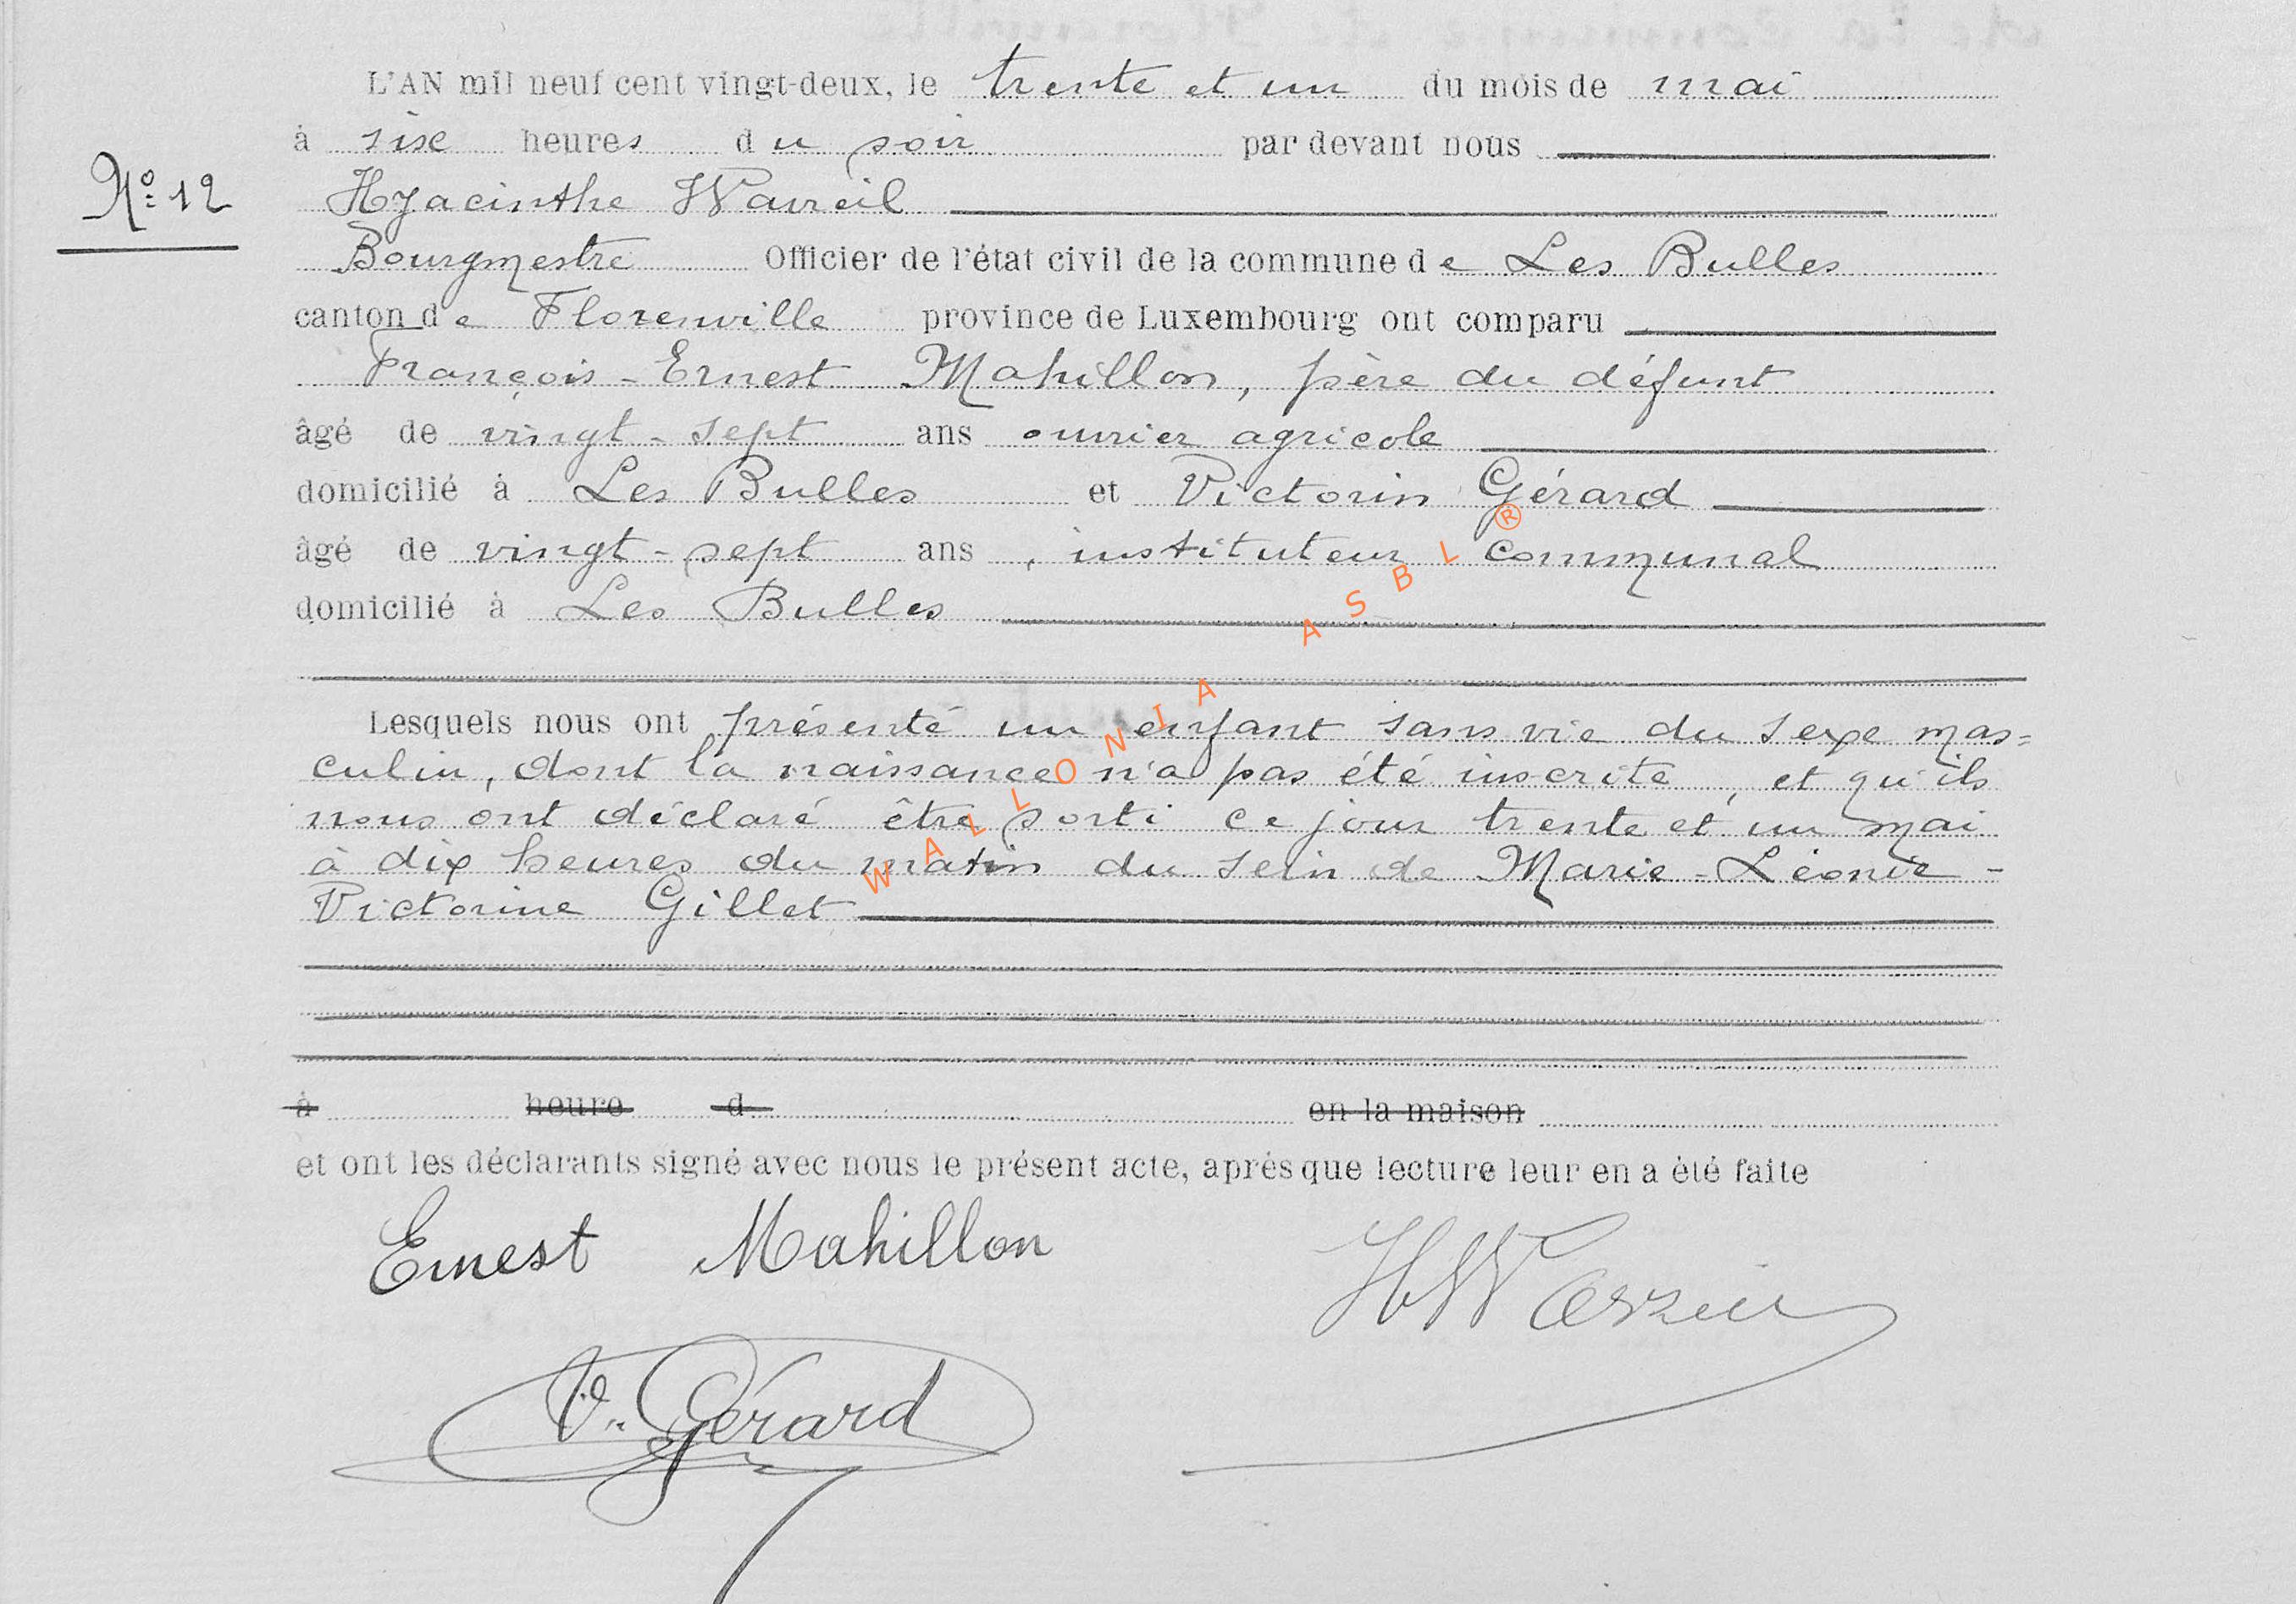 L'AN mil neuf cent vingt-deux, le trente et un du mois de mai
à six heures du soir par devant nous
N° 12
Hyacinthe Wavreil
Bourgmestre Officier de l'état civil de la commune de Les Bulles
canton de Florenville province de Luxembourg ont comparu
François-Ernest Mahillon, père du défunt
âgé de vingt-sept ans ouvrier agricole
domicilié à Les Bulles et Victorin Gérard
âgé de vingt-sept ans, instituteur communal
domicilié à Les Bulles
Lesquels nous ont présenté un enfant sans vie du sexe mas=
culin, dont la naissance n'a pas été inscrite, et qu'ils
nous ont déclaré être sorti ce jour trente et un mai
à dix heures du matin du sein de Marie-Léonie-
Victorine Gillet
à heure d en la maison
et ont les déclarants signé avec nous le présent acte, après que lecture leur en a été faite
Ernest Mahillon
V. Gérard
WALLONIA ASBL ®